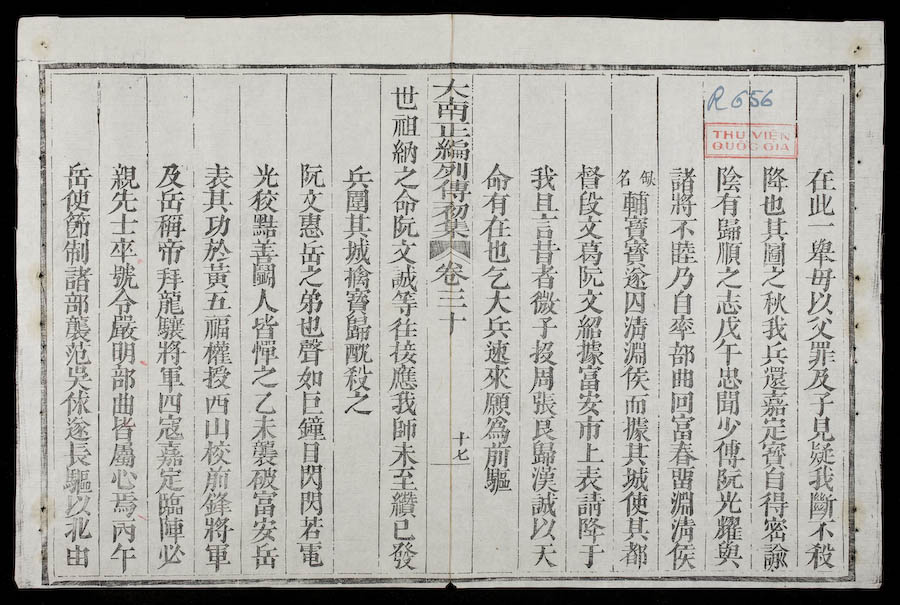 R 656
THƯ VIỆN
QUỐC GIA
在此一舉毋以父罪及子見疑我斷不殺
降也其圖之秋我兵還嘉定寶自得密諭
陰有歸順之志戊午忠聞少傅阮光耀與
諸將不睦乃自率部曲回富春留淵淸侯
缺名輔寶寶遂囚淸淵侯而據其城使其都
督段文葛阮文紹據富安市上表請降于
我且言昔者微子投周張良歸漢誠以天
命有在也乞大兵速來願爲前驅
大南正編列傳初集 卷三十 十七
世祖納之命阮文誠等往接應我師未至纘已發
兵圍其城擒寶歸酖殺之
阮文惠岳之弟也聲如巨鐘目閃閃若電
光狡黠善鬭人皆憚之乙未襲破富安岳
表其功於黃五福權授西山校前鋒將軍
及岳稱帝拜龍驤將軍四寇嘉定臨陣必
親先士卒號令嚴明部曲皆屬心焉丙午
岳使節制諸部襲范吳俅遂長驅以北由